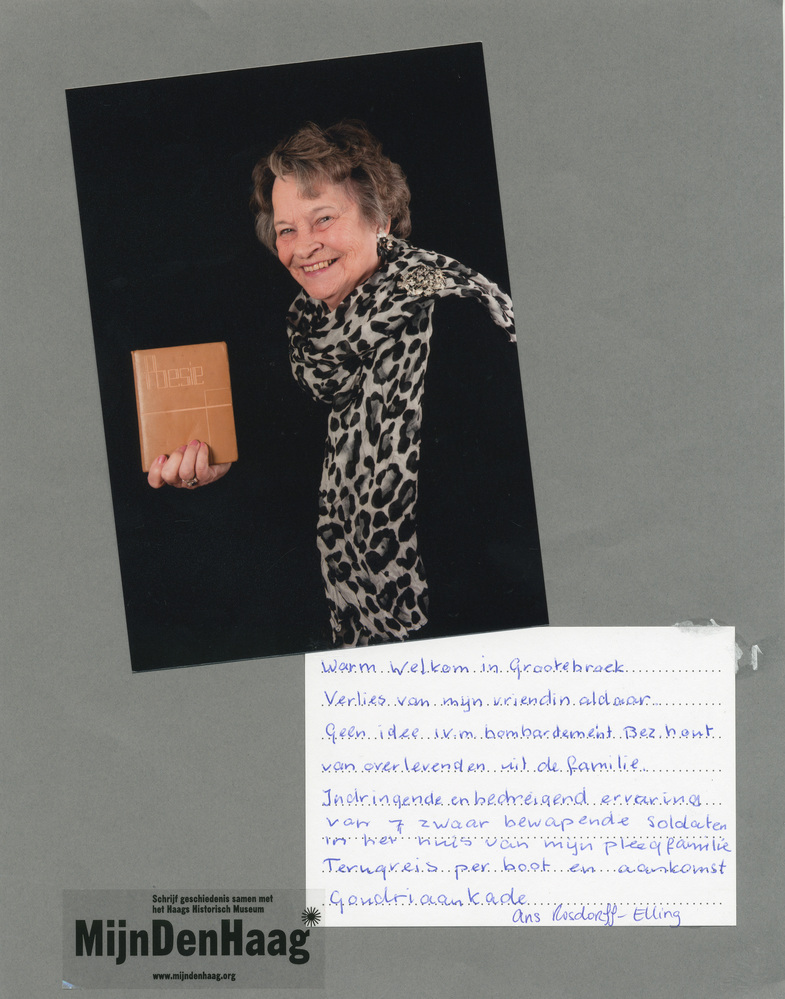 Poesie
Warm welkom in Grootebroek
Verlies van mijn vriendin aldaar
Geen idee i.v.m. bombardement Bez.hout
van overlevenden uit de familie.
Indringende en bedreigend ervaring
van 7 zwaar bewapende soldaten
in het huis van mijn pleegfamilie
Terugreis per boot en aankomst
Goudriaankade
Ans Rosdorff-Elling
Schrijf geschiedenis samen met
het Haags Historisch Museum
MijnDenHaag
www.mijndenhaag.org